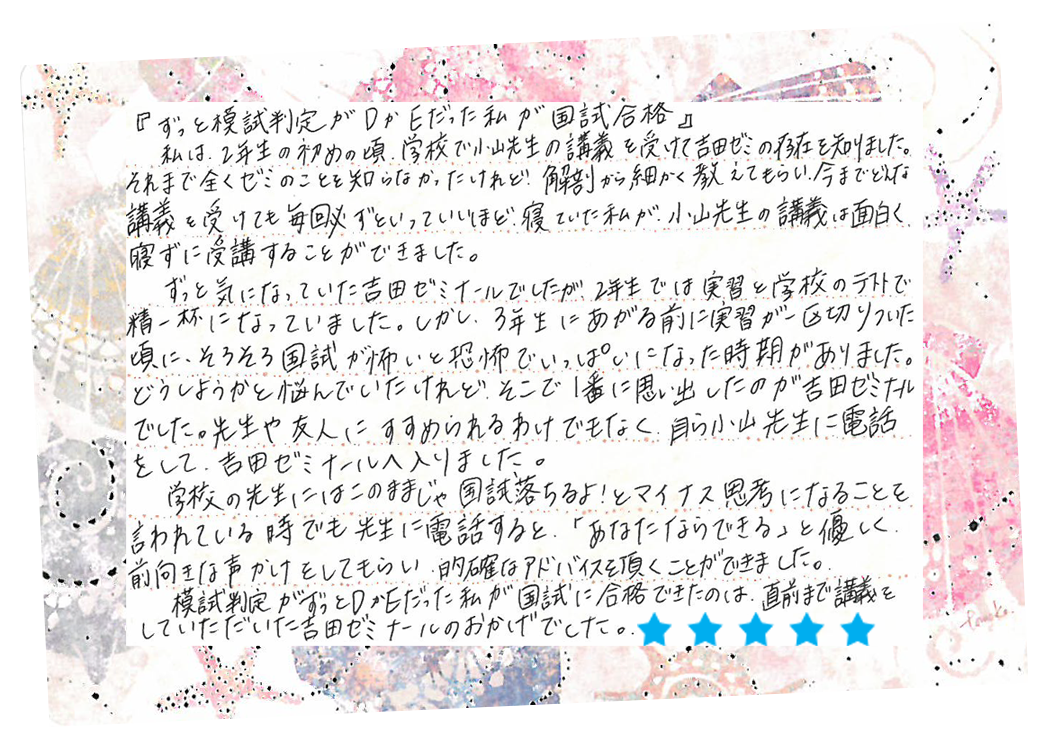 『ずっと模試判定がDかEだった私が国試合格』
私は、2年生の初めの頃、学校で小山先生の講義を受けて吉田ゼミの存在を知りました。
それまで全くゼミのことを知らなかったけれど、解剖から細かく教えてもらい、今までどんな
講義を受けても毎回必ずといっていいほど、寝ていた私が、小山先生の講義は面白く、
寝ずに受講することができました。
ずっと気になっていた吉田ゼミナールでしたが、2年生では実習と学校のテストで
精一杯になっていました。しかし、3年生にあがる前に実習が一区切りついた
頃に、そろそろ国試が怖いと恐怖でいっぱいになった時期がありました。
どうしようかと悩んでいたけれど、そこで1番に思い出したのが吉田ゼミナール
でした。先生や友人にすすめられるわけでもなく、自ら小山先生に電話
をして、吉田ゼミナールへ入りました。
学校の先生にはこのままじゃ国試落ちるよ!とマイナス思考になることを
言われている時でも先生に電話すると、「あなたならできる」と優しく、
前向きな声かけをしてもらい、的確なアドバイスを頂くことができました。
模試判定がずっとDかEだった私が国試に合格できたのは、直前まで講義を
していただいた吉田ゼミナールのおかげでした。★★★★★